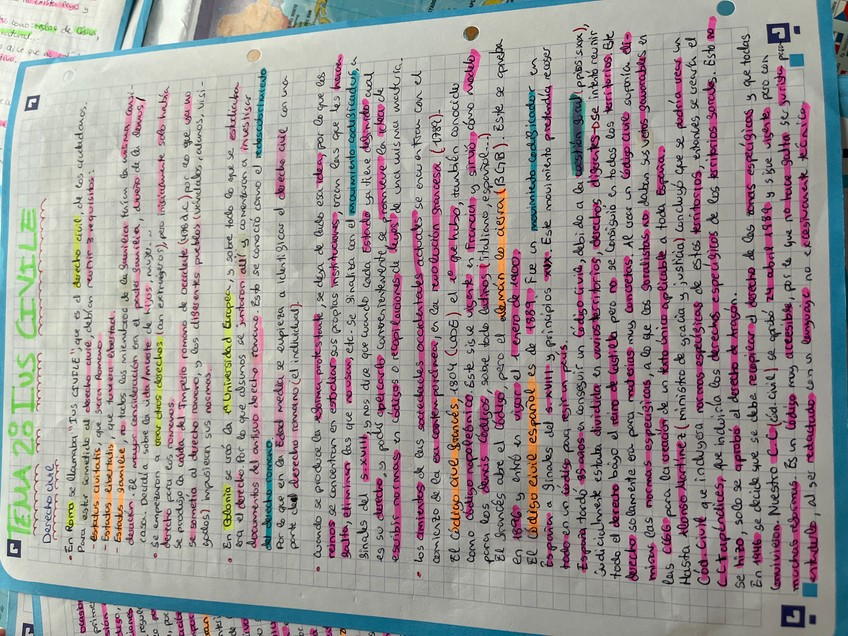 TEMA 2: IUS CIVILE
Derecho civil
• En Roma se llamaba "IUS CIVILE", que es el derecho civil, de los ciudadanos.
Para estar sometido al derecho civil, debían reunir 3 requisitos:
- Estatus civitatis, que seas romano.
- Estatus libertatis, que tuvieran libertad.
- Estatus familie, no todos los integrantes de la familia tenían la misma consi-
deración. El mayor consideración era el pater familia, dueño de la domus /
casa. Decidía sobre la vida/muerte de hijos, mujer...
• Se empezaron a crear otros derechos (con extranjeros), pero internamente solo había
derecho para los romanos.
Se produjo la caída del Imperio romano de occidente (476 d.C) por lo que ya no
se sometía al derecho romano, y los diferentes pueblos (vándalos, alanos, visi-
godos) impusieron sus normas.
• En Bolonia se crea la 1ª Universidad Europea, y sobre todo lo que se estudiaba
era el derecho. Por lo que algunos se juntaron allí y comenzaron a investigar
documentos del antiguo derecho romano. Esto se conoció como el redescubrimiento
del derecho romano.
Por lo que en la Edad media se empieza a identificar el derecho civil con una
parte del derecho romano (el individual).
• Cuando se produce la reforma protestante se deja de lado esa idea, por lo que los
reinos se concentran en estudiar sus propias instituciones, crean las que les hacen
falta, eliminan las que no usan, etc. Se finaliza con el movimiento codificador, a
finales del s. XVIII, y nos dice que cuando cada Estado ya tiene definido cual
es su derecho y pudo aplicarlo convenientemente, se promueve la idea de
escribir normas en códigos o recopilaciones de leyes de una misma materia.
• Los comienzos de las sociedades occidentales actuales se encuentran con el
comienzo de la era contemporánea, en la revolución francesa (1789).
El Código civil francés, 1804 (CODE) el 1º que hubo, también conocido
como Código napoleónico. Este sigue vigente en Francia y sirvió cómo modelo
para los demás códigos, sobre todo latinos (italiano, español...)
El francés abre el código, pero el alemán lo cierra (BGB). Este se aprueba
en 1896 y entró en vigor el 1 enero de 1900.
El Código civil español es de 1889. Fue un movimiento codificador en
España a finales del s. XVIII y principios XIX. Este movimiento pretendía recoger
todo en un código para regir un país.
España tardó 85 años en conseguir un código civil, debido a la cuestión foral (ppios s.XIX),
jurídicamente estaba dividida en varios territorios, derechos diferentes. Se intentó reunir
todo el derecho bajo el fuero de Castilla pero no se consiguió en todos los territorios. Este
derecho solamente era para materias muy concretas. Al crear un código civil suponía eli-
minar las normas específicas, a lo que los foralistas no daban sus votos favorables en
las Cortes para la creación de un texto único aplicable a toda España.
Hasta Alonso Martínez (ministro de gracia y justicia) concluyó que se podría crear un
Cód. Civil que incluyera normas específicas de estos territorios, entonces se crearía el
CC + apéndices, que incluiría los derechos específicos de los territorios forales. Esto no
se hizo, solo se aprobó el derecho de Aragón.
En 1946 se decide que se debe recopilar el derecho de las zonas específicas y que todas
convivieran. Nuestro C.C (Cód. Civil) se aprobó 24 abril 1889 y sigue vigente pero con
muchas reformas. Es un código muy accesible, por lo que no hace falta ser jurista para
entenderlo, al ser redactado con un lenguaje no excesivamente técnico.